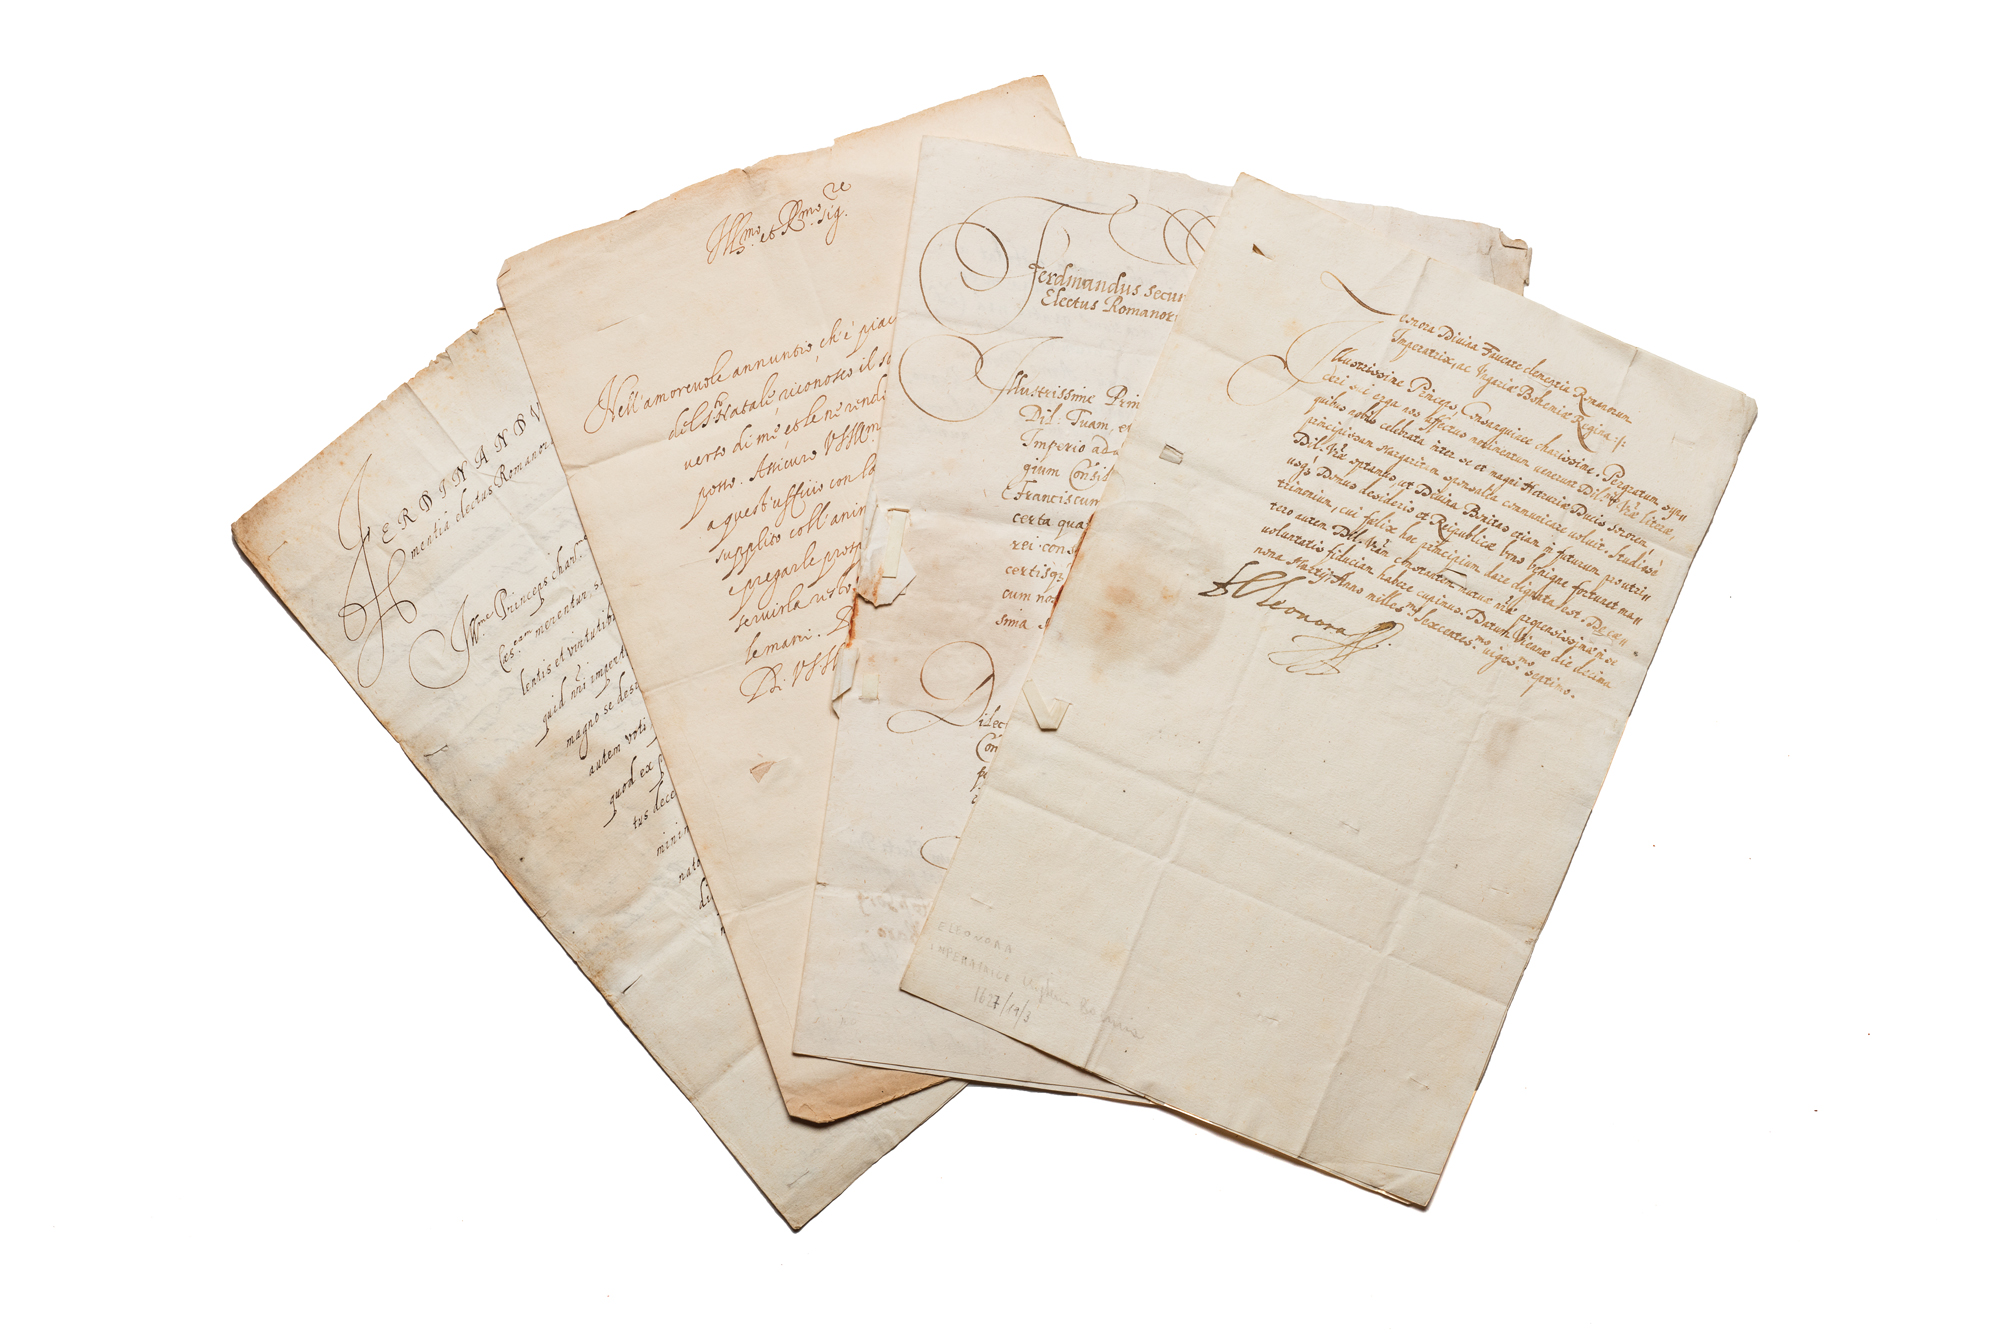 FERDINANDV
mentia electus Romanor
Ill.me Princeps char.me
Caes.eam merentur, s
lentis et virtutib
quid n̄ri imperti
magno se desi
autem voti
quod ex
tus dece
minin
nato
di
Ill.mo et R.mo Sig.re
Nell'amorevole annuntio, ch'è piac
del S.to Natale riconosco il s
verso di me, et le ne rendo
posso. Assicuro VSIllm
a quest'ufficio con la
supplito coll'anim
e pregarle prosp
servirla
le mani.
Di VSIll
Ferdinandus secun
Electus Romanor
Illustrissime Prin
Dil. Tuam, et
Imperio adu
gium Consil
Franciscum
certa qua
rei cons
certisq
cum nos
sima
Dilec
Con
Leonora Divina Favente clementia Romanorum
Imperatrix, ac Ungariæ Bohemiæ Regina :/:
Illustrissime Princeps, Consanguinee charissime. Pergratum syn
ceri sui erga nos affectus monimentum venerunt Dil.nis Vrae literae,
quibus nobis celebrata inter se et magni Hetruriae Ducis sororem
principissam Margaritam sponsalia communicare voluit. Studiosè
Dil. Vrae optamus, ut Divina Bonitas etiam in futurum pro utri
usq; Domus desiderio et Reipublicae bono benigne fortunet ma
trimonium, cui felix hoc principium dare dignata est. De cae
tero autem Dil. Vram constantem mutuae nrae propensissimae in se
voluntatis fiduciam habere cupimus. Datum Viennae die decima
nona Martij Anno milles.mo sexcentes.mo viges.mo septimo.
Eleonora
ELEONORA
IMPERATRICE Ungheria Boemia
1627/19/3